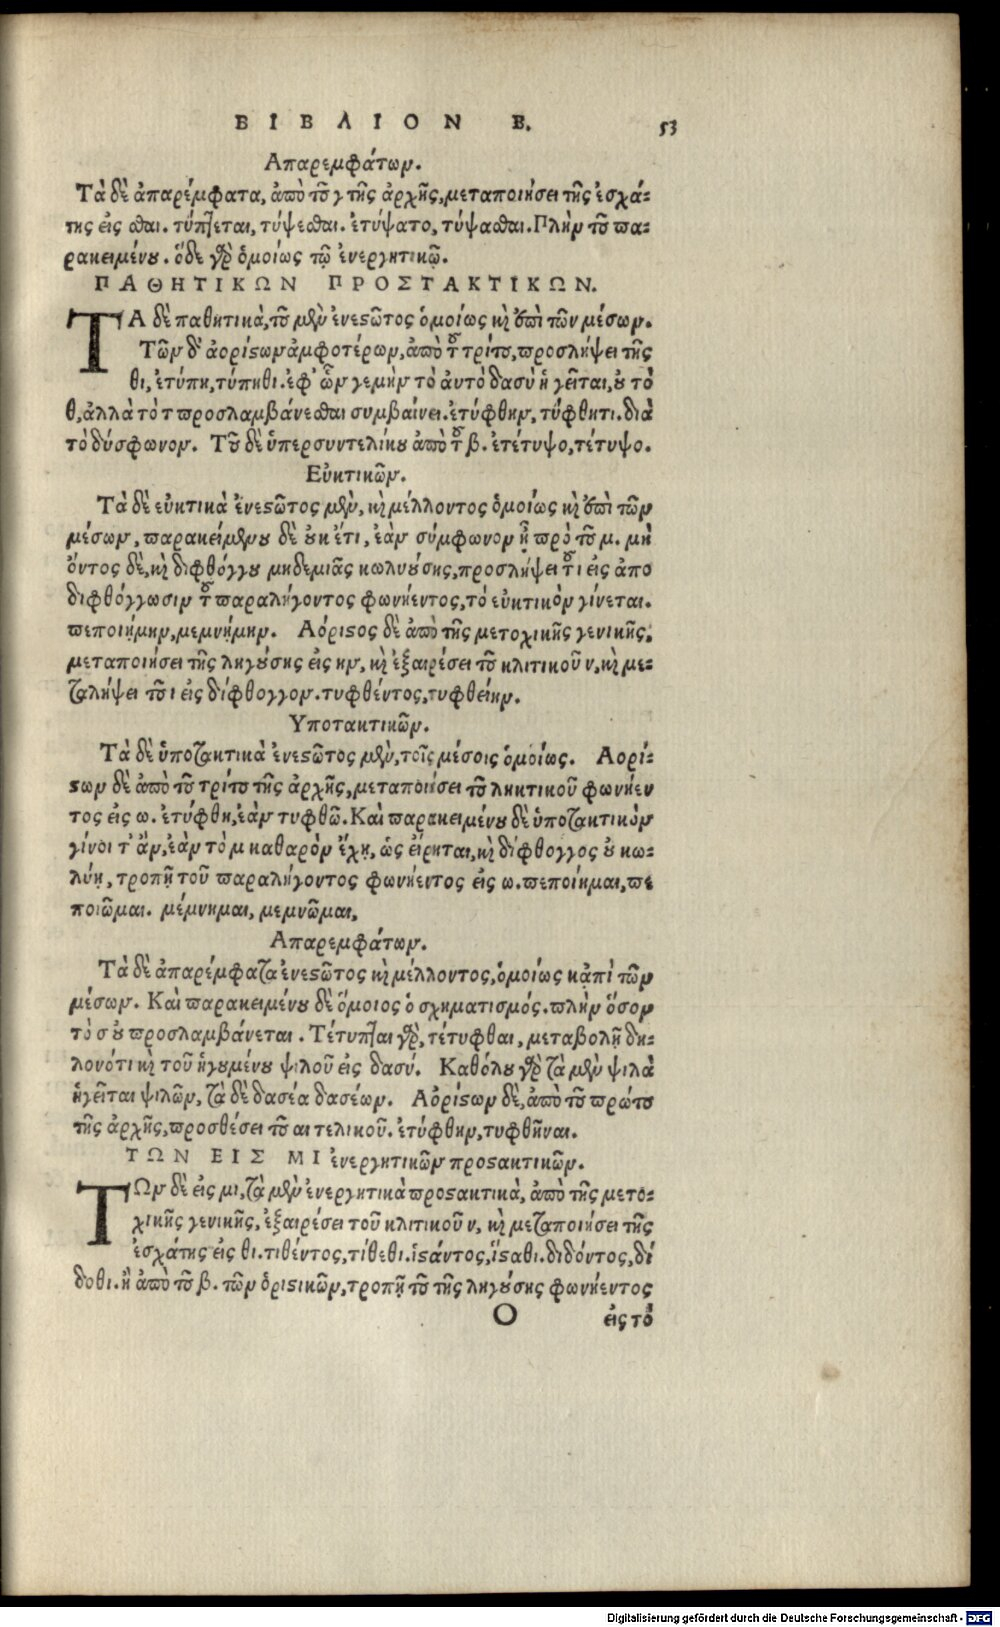 ΒΙΒΛΙΟΝ Β. 53
Απαρεμφάτων.
Τὰ δὲ ἀπαρέμφατα, ἀπὸ τοῦ γ τῆς ἀρχῆς, μεταποιήσει τῆς ἐσχά-
της εἰς σθαι. τύπτεται, τύψεσθαι. ἐτύψατο, τύψασθαι. Πλὴν τοῦ πα-
ρακειμένου. ὅδε γὰρ ὁμοίως τῷ ἐνεργητικῷ.
ΠΑΘΗΤΙΚΩΝ ΠΡΟΣΤΑΚΤΙΚΩΝ.
ΤΑ δὲ παθητικὰ, τοῦ μὲν ἐνεστῶτος ὁμοίως καὶ ἐπὶ τῶν μέσων.
Τῶν δ' ἀορίστων ἀμφοτέρων, ἀπὸ τοῦ τρίτου, προσλήψει τῆς
θι, ἐτύπη, τύπηθι. ἐφ' ὧν γεμὴν τὸ αὐτὸ δασὺ ἡγεῖται, οὐ τὸ
θ, ἀλλὰ τὸ τ προσλαμβάνεσθαι συμβαίνει. ἐτύφθην, τύφθητι. διὰ
τὸ δύσφωνον. Τοῦ δὲ ὑπερσυντελίκου ἀπὸ τοῦ β. ἐτέτυψο, τέτυψο.
Εὐκτικῶν.
Τὰ δὲ εὐκτικὰ ἐνεστῶτος μὲν, καὶ μέλλοντος ὁμοίως καὶ ἐπὶ τῶν
μέσων, παρακείμενου δὲ οὐκ ἔτι, ἐὰν σύμφωνον ᾖ πρὸ τοῦ μ. μὴ
ὄντος δὲ, καὶ διφθόγγου μηδεμιᾶς κωλυούσης, προσλήψει τοῦ ι εἰς ἀπο
διφθόγγωσιν τοῦ παραλήγοντος φωνήεντος, τὸ εὐκτικὸν γίνεται.
πεποιῄμην, μεμνῄμην. Αόριστος δὲ ἀπὸ τῆς μετοχικῆς γενικῆς,
μεταποιήσει τῆς ληγούσης εἰς ην, καὶ ἐξαιρέσει τοῦ κλιτικοῦ ν, καὶ με-
ταλήψει τοῦ ι εἰς δίφθογγον. τυφθέντος, τυφθείην.
Υποτακτικῶν.
Τὰ δὲ ὑποτακτικὰ ἐνεστῶτος μὲν, τοῖς μέσοις ὁμοίως. Αορί-
στων δὲ ἀπὸ τοῦ τρίτου τῆς ἀρχῆς, μεταποιήσει τοῦ ληκτικοῦ φωνήεν
τος εἰς ω. ἐτύφθη, ἐὰν τυφθῶ. Καὶ παρακειμένου δὲ ὑποτακτικὸν
γίνοιτ' ἂν, ἐὰν τὸ μ καθαρὸν ἔχῃ, ὡς εἴρηται, καὶ δίφθογγος οὐ κω-
λύῃ, τροπῇ τοῦ παραλήγοντος φωνήεντος εἰς ω. πεποίημαι, πε
ποιῶμαι. μέμνημαι, μεμνῶμαι,
Απαρεμφάτων.
Τὰ δὲ ἀπαρέμφατα ἐνεστῶτος καὶ μέλλοντος, ὁμοίως κᾀπὶ τῶν
μέσων. Καὶ παρακειμένου δὲ ὅμοιος ὁ σχηματισμός. πλὴν ὅσον
τὸ σ οὐ προσλαμβάνεται. Τέτυπται γὰρ, τέτυφθαι, μεταβολῇ δη-
λονότι καὶ τοῦ ἡγουμένου ψιλοῦ εἰς δασύ. Καθόλου γὰρ τὰ μὲν ψιλὰ
ἡγεῖται ψιλῶν, τὰ δὲ δασέα δασέων. Αὀρίστων δὲ, ἀπὸ τοῦ πρώτου
τῆς ἀρχῆς, προσθέσει τοῦ αι τελικοῦ. ἐτύφθην, τυφθῆναι.
ΤΩΝ ΕΙΣ ΜΙ ἐνεργητικῶν προστακτικῶν.
ΤΩν δὲ εἰς μι, τὰ μὲν ἐνεργητικὰ προστακτικὰ, ἀπὸ τῆς μετο-
χικῆς γενικῆς, ἐξαιρέσει τοῦ κλιτικοῦ ν, καὶ μεταποιήσει τῆς
ἐσχάτης εἰς θι. τιθέντος, τίθεθι. ἱστάντος, ἵσταθι. διδόντος, δί
δοθι. ἢ ἀπὸ τοῦ β. τῶν ὁριστικῶν, τροπῇ τοῦ τῆς ληγούσης φωνήεντος
O εἰς τὸ
Digitalisierung gefördert durch die Deutsche Forschungsgemeinschaft - DFG